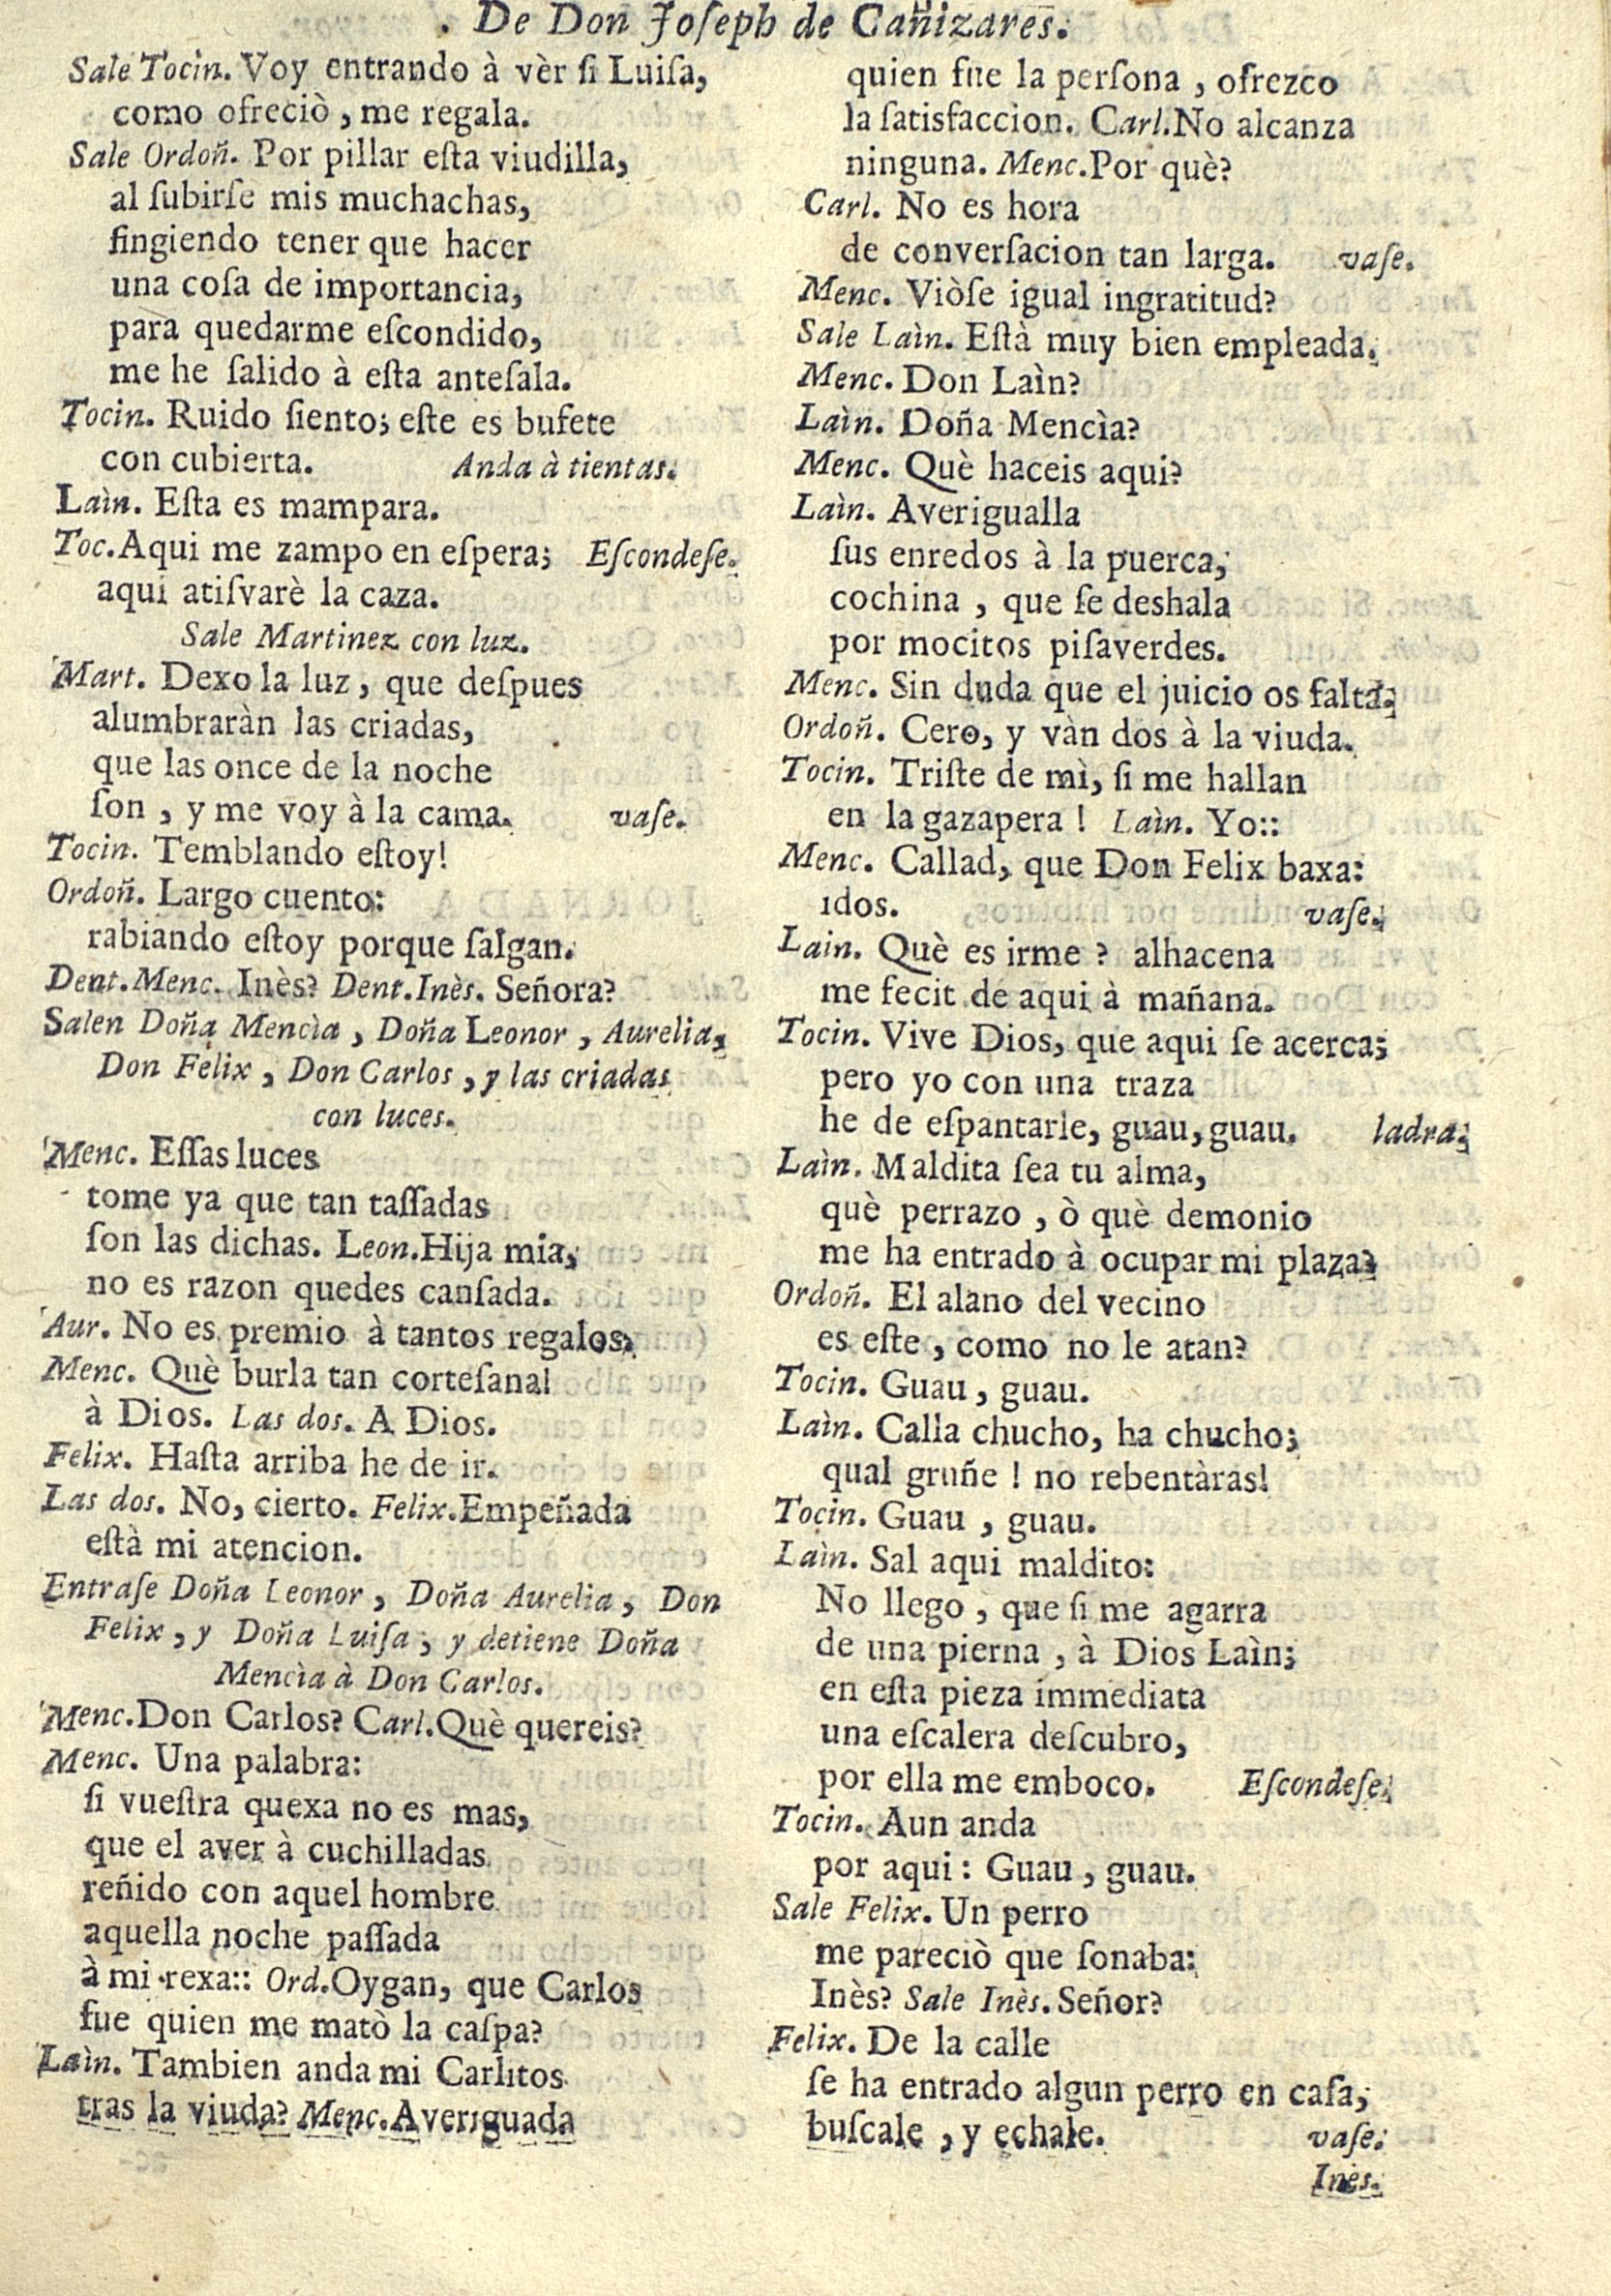 De Don Joſeph de Cañizares.
Sale Tocin. Voy entrando à vèr ſi Luiſa,
como ofreciò, me regala.
Sale Ordoñ. Por pillar eſta viudilla,
al ſubirſe mis muchachas,
fingiendo tener que hacer
una coſa de importancia,
para quedarme eſcondido,
me he ſalido à eſta anteſala.
Tocin. Ruido ſiento; eſte es bufete
con cubierta. Anda à tientas.
Laìn. Eſta es mampara.
Toc. Aqui me zampo en eſpera; Eſcondeſe.
aqui atiſvarè la caza.
Sale Martinez con luz.
Mart. Dexo la luz, que deſpues
alumbraràn las criadas,
que las once de la noche
ſon, y me voy à la cama. vaſe.
Tocin. Temblando eſtoy!
Ordoñ. Largo cuento:
rabiando eſtoy porque ſalgan.
Dent. Menc. Inès? Dent. Inès. Señora?
Salen Doña Mencìa, Doña Leonor, Aurelia,
Don Felix, Don Carlos, y las criadas
con luces.
Menc. Eſſas luces
tome ya que tan taſſadas
ſon las dichas. Leon. Hija mia,
no es razon quedes canſada.
Aur. No es premio à tantos regalos.
Menc. Què burla tan corteſana!
à Dios. Las dos. A Dios.
Felix. Haſta arriba he de ir.
Las dos. No, cierto. Felix. Empeñada
eſtà mi atencion.
Entraſe Doña Leonor, Doña Aurelia, Don
Felix, y Doña Luiſa, y detiene Doña
Mencìa à Don Carlos.
Menc. Don Carlos? Carl. Què quereis?
Menc. Una palabra:
ſi vueſtra quexa no es mas,
que el aver à cuchilladas
reñido con aquel hombre
aquella noche paſſada
à mi rexa:: Ord. Oygan, que Carlos
fue quien me matò la caſpa?
Laìn. Tambien anda mi Carlitos
tras la viuda? Menc. Averiguada
quien fue la perſona, ofrezco
la ſatisfaccion. Carl. No alcanza
ninguna. Menc. Por què?
Carl. No es hora
de converſacion tan larga. vaſe.
Menc. Viòſe igual ingratitud?
Sale Laìn. Eſtà muy bien empleada.
Menc. Don Laìn?
Laìn. Doña Mencìa?
Menc. Què haceis aqui?
Laìn. Averigualla
ſus enredos à la puerca,
cochina, que ſe deshala
por mocitos piſaverdes.
Menc. Sin duda que el juicio os falta.
Ordoñ. Cero, y vàn dos à la viuda.
Tocin. Triſte de mì, ſi me hallan
en la gazapera! Laìn. Yo::
Menc. Callad, que Don Felix baxa:
idos. vaſe.
Lain. Què es irme? alhacena
me fecit de aqui à mañana.
Tocin. Vive Dios, que aqui ſe acerca;
pero yo con una traza
he de eſpantarle, guau, guau. ladra.
Laìn. Maldita ſea tu alma,
què perrazo, ò què demonio
me ha entrado à ocupar mi plaza?
Ordoñ. El alano del vecino
es eſte, como no le atan?
Tocin. Guau, guau.
Laìn. Calla chucho, ha chucho;
qual gruñe! no rebentàras!
Tocin. Guau, guau.
Laìn. Sal aqui maldito:
No llego, que ſi me agarra
de una pierna, à Dios Laìn;
en eſta pieza immediata
una eſcalera deſcubro,
por ella me emboco. Eſcondeſe.
Tocin. Aun anda
por aqui: Guau, guau.
Sale Felix. Un perro
me pareciò que ſonaba:
Inès? Sale Inès. Señor?
Felix. De la calle
ſe ha entrado algun perro en caſa,
buſcale, y echale. vaſe.
Inès.